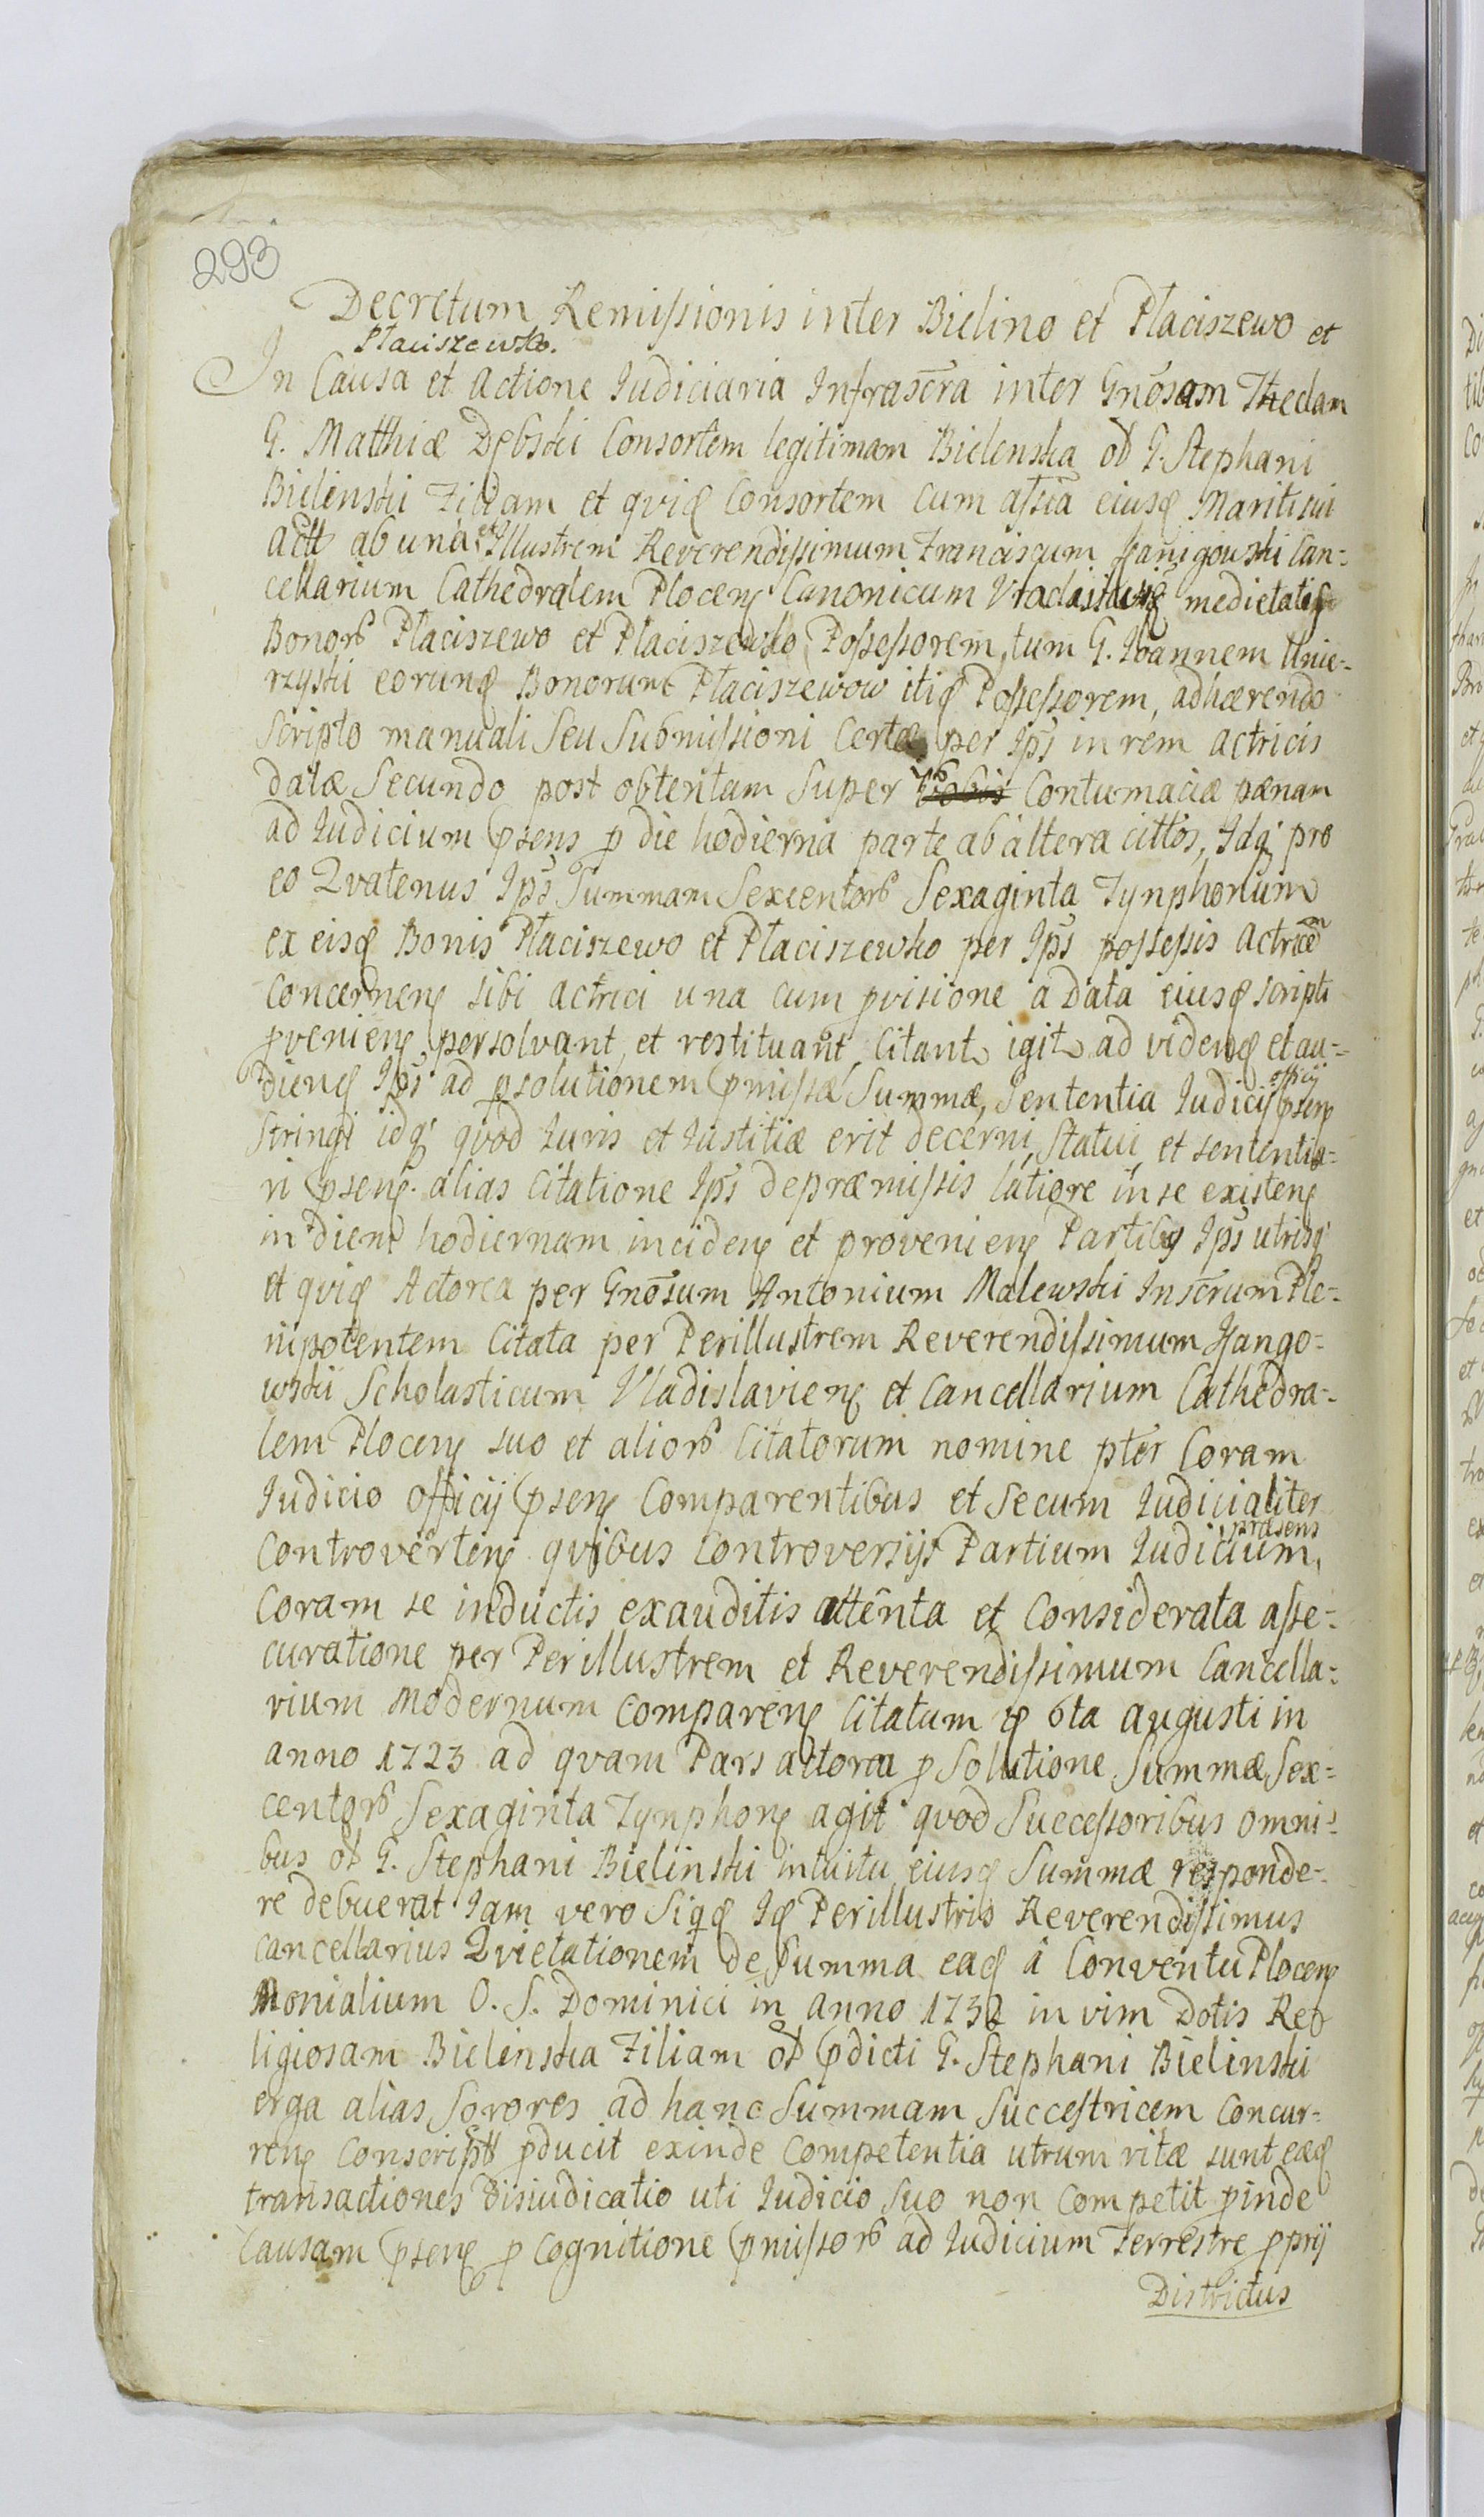 293
Decretum Remissionis inter Bielino et Płaciszewo et
Płaciszewko.
In Causa et Actione Iudiciaria Infrascra inter Gnosam Theclam
G. Matthiæ Dębski Consortem legitimam Bielenska ol G. Stephani
Bielinski Filiam et qviq Consortem cum assia eiusq Mariti sui
ab una et Illustrem Reverendissimum Franciscum Can-
cellarium Cathedralem Plocenę Canonicum medietatis
Bonorb Płaciszewo et Płaciszewko Possessorem, tum G. Ioannem Unie-
rzyski eorunq Bonorum Płaciszewow itiq Possessorem, adhærendo
Scripto manuali Seu Submissioni Certæ per Ips in rem Actricis
datæ Secundo post obtentam Super Contumaciæ pænam
ad Iudicium psens p die hodierna parte ab altera cittos, Idq pro
eo Qvatenus Ips Summam Sexcentorb Sexaginta Tynphorum
ex eisq Bonis Płaciszewo et Płaciszewko per Ips possessis Actricem
Concernenę sibi Actrici una cum pvisione a Data eiusq scripti
pvenienę persolvant, et restituant, Citant igit ad videnq et au-
dienq Ips ad psolutionem pmissæ Summæ, Sententia Iudicij officij psenę
Stringi idq qvod Iuris et Iustitiæ erit decerni, Statui, et sententia-
ri psenę alias Citatione Ips depræmissis latiore in se existenę
in diem hodiernam incidenę et provenienę Partibq Ips utrisq
et qviq Actorea per Gnosum Antonium Malewski Inscrum Ple-
nipotentem Citata per Perillustrem Reverendissimum
Scholasticum Vladislavienę et Cancellarium Cathedra-
lem Plocenę suo et aliorb Citatorum nomine pter Coram
Iudicio officij psenę Comparentibus et Secum Iudicialiter
Controvertenę qvibus Controversijs Partium Iudicium præsens
Coram se inductis exauditis attenta et Considerata asse-
curatione per Perillustrem et Reverendissimum Cancella-
rium Modernum comparenę Citatum 6ta Augusti in
anno 1723 ad qvam Pars Actorea p Solutione Summæ Sex-
centorb Sexaginta Tynphorę agit qvod Successoribus omni-
bus ol G. Stephani Bielinski intuitu eiusq Summæ responde-
re debuerat Iam vero Siqq Iq Perillustris Reverendissimus
Cancellarius Qvietationem de Summa eaq á Conventu Plocenę
Monialium O. S. Dominici in Anno 1732 in vim Dotis Re
ligiosam Bielinska Filiam ol pdicti G. Stephani Bielinski
erga alias Sorores ad hanc Summam Successtricem Concur-
renę Conscript pducit exinde Competentia utrum ritæ sunt eæq
transactiones disiudicatio uti Iudicio Suo non Competit pinde
Causam psenę p Cognitione pmissorb ad Iudicium Terrestre pprij
Districtus